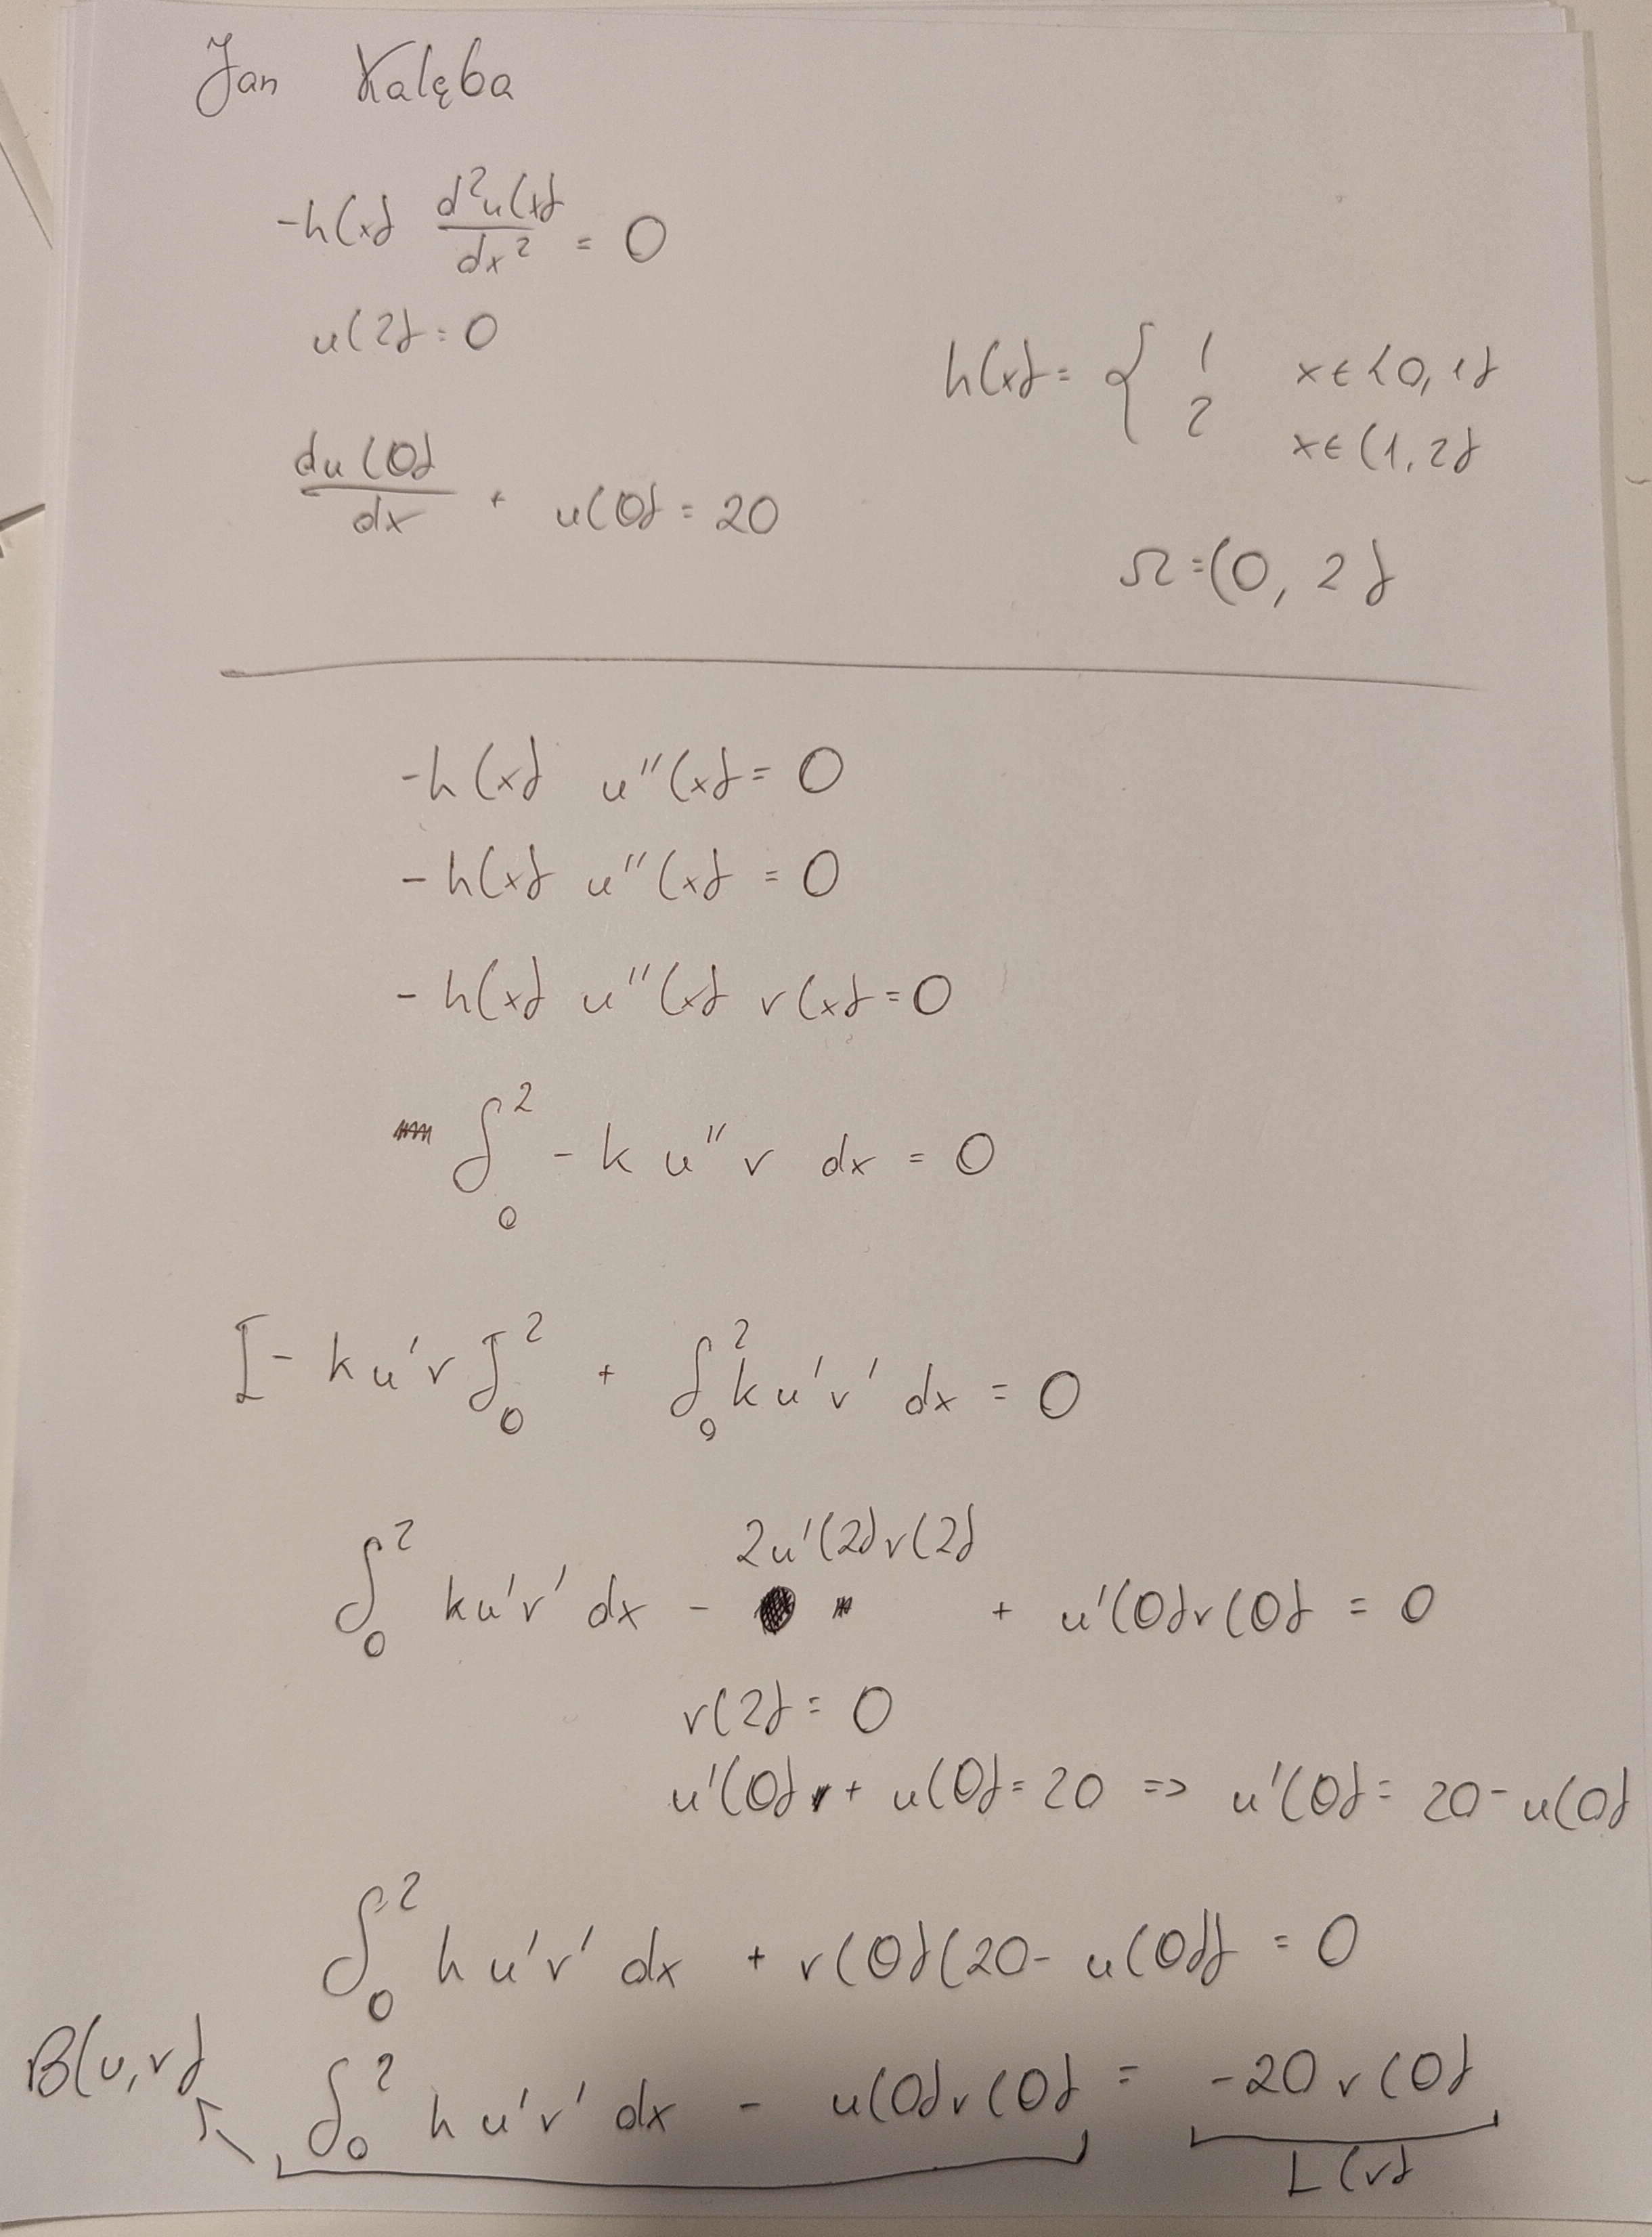 Jan Kalęba
-h(x) d²u(x)/dx² = 0
u(2) = 0
h(x) = { 1 x ∈ <0, 1>
2 x ∈ (1, 2>
du(0)/dx + u(0) = 20
Ω = (0, 2)
-h(x) u''(x) = 0
- h(x) u''(x) = 0
- h(x) u''(x) v(x) = 0
∫₀² - k u'' v dx = 0
[- k u' v]₀² + ∫₀² k u' v' dx = 0
∫₀² k u' v' dx - 2u'(2)v(2) + u'(0)v(0) = 0
v(2) = 0
u'(0) + u(0) = 20 => u'(0) = 20 - u(0)
∫₀² h u' v' dx + v(0)(20 - u(0)) = 0
B(u,v)
∫₀² h u' v' dx - u(0)v(0) = -20 v(0)
L(v)